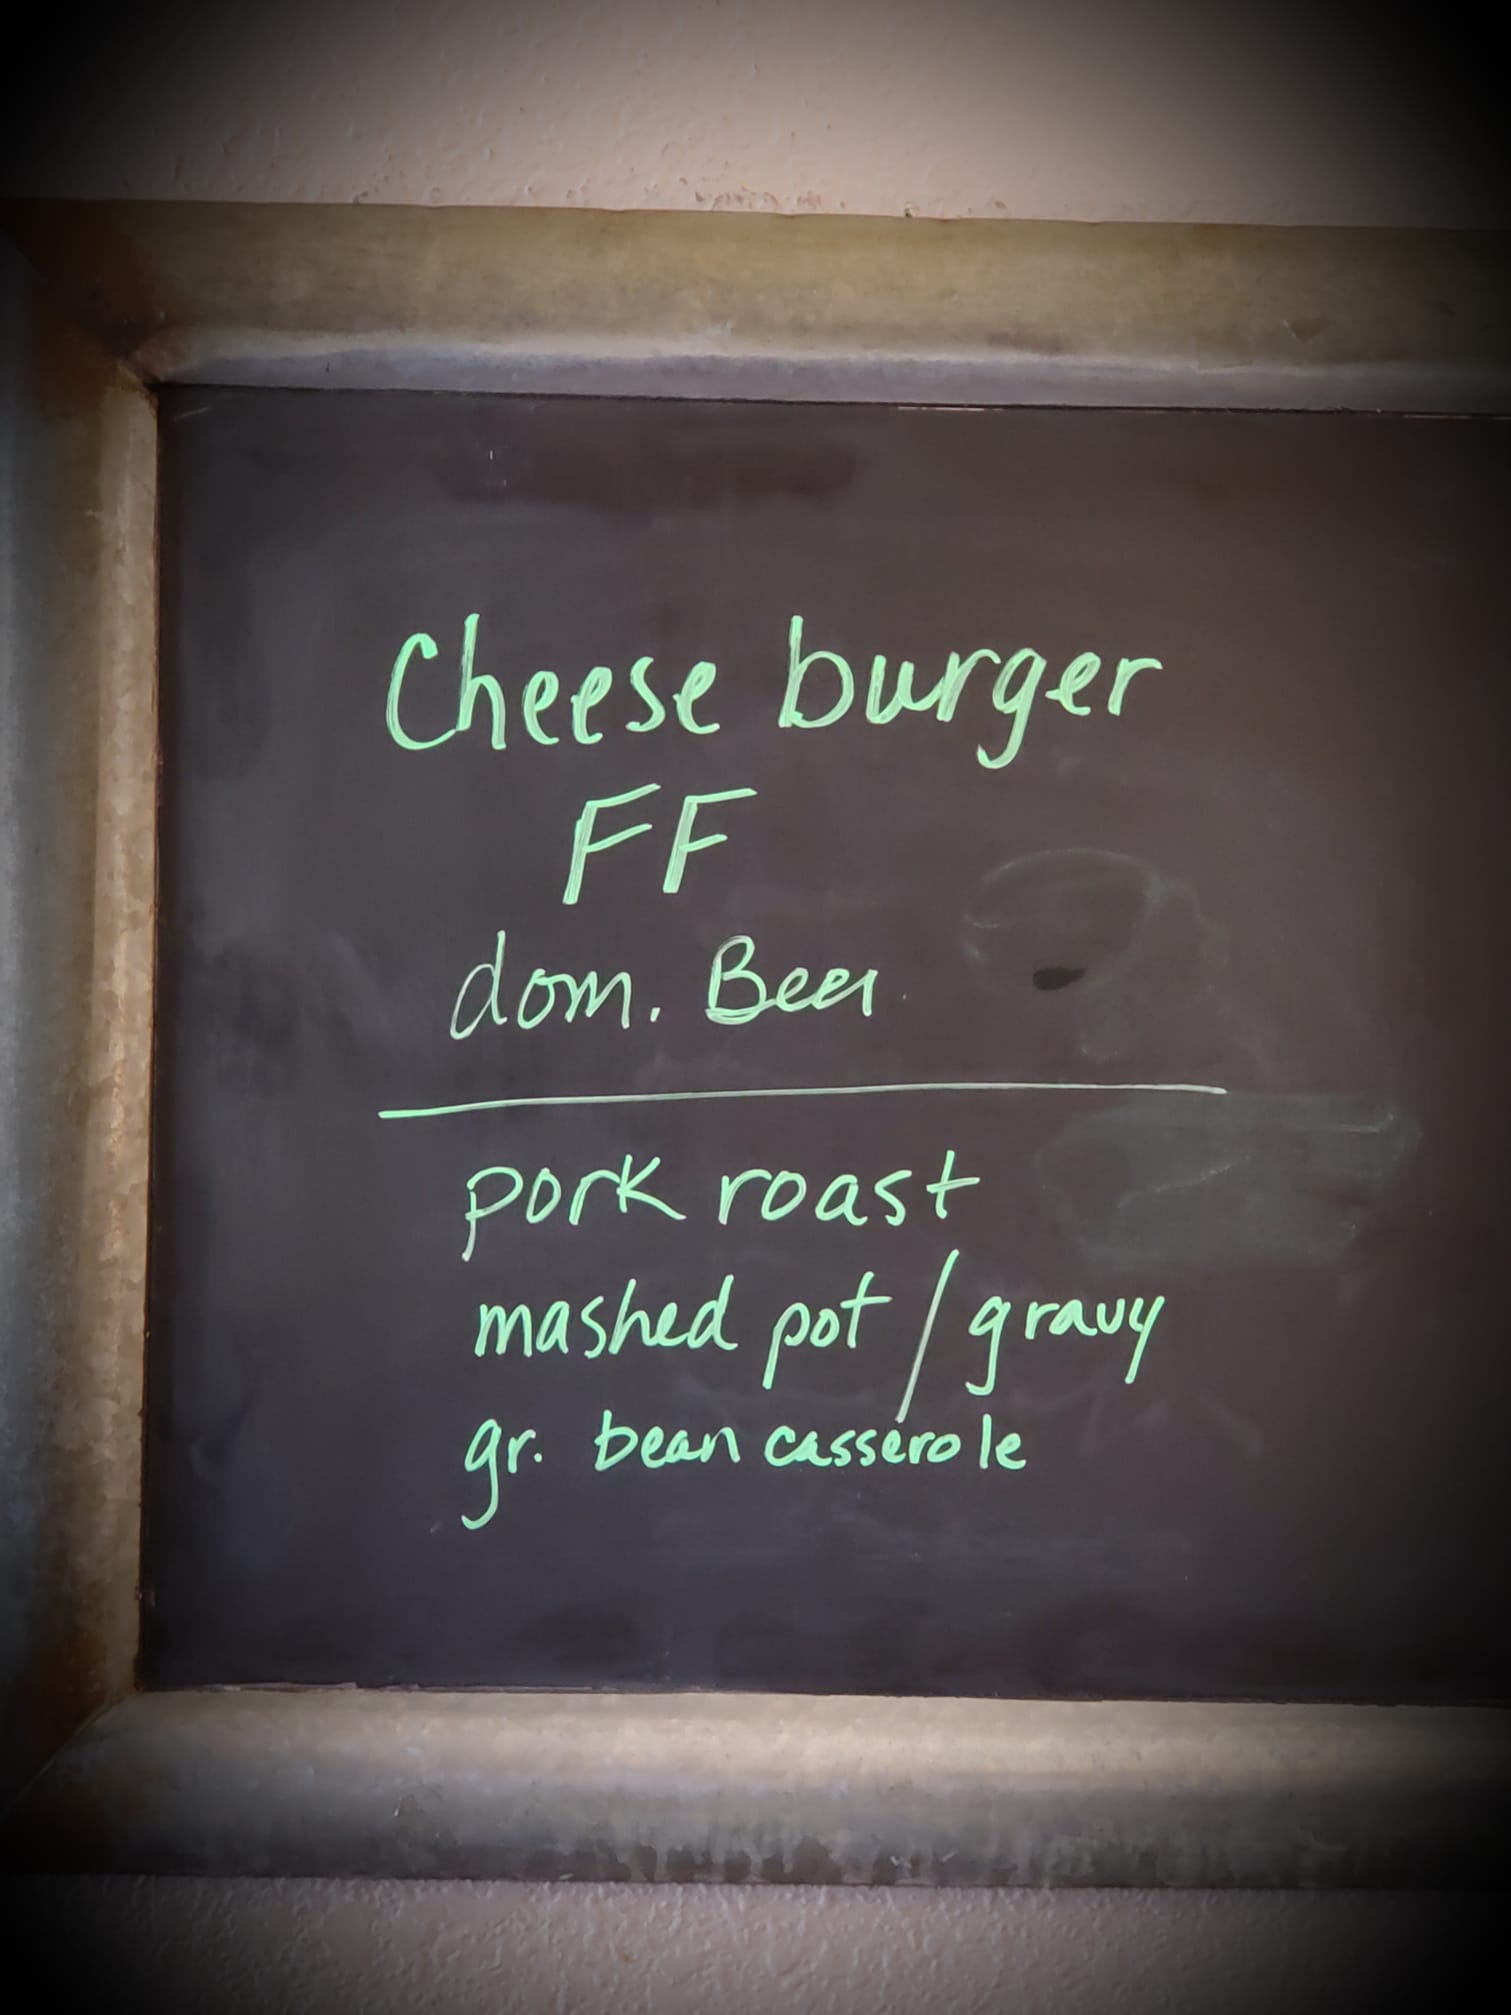 Cheese burger
FF
dom. Beer
pork roast
mashed pot / gravy
gr. bean casserole